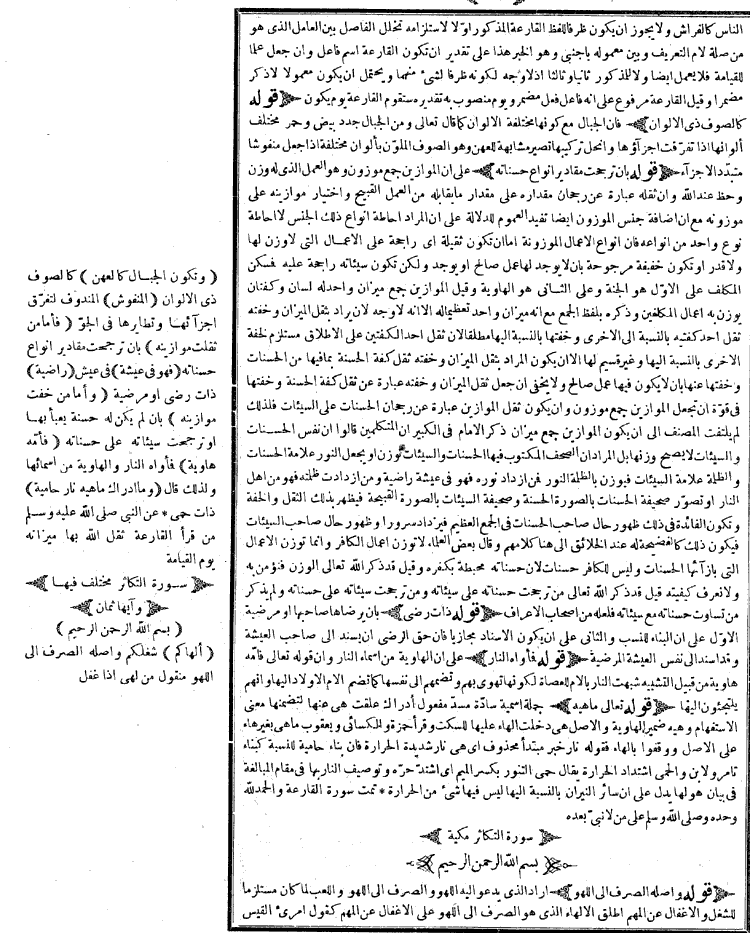 الناس كالفراش ولا يجوز ان يكون ظرفا للفظ القارعة المذكور اوّلا لاستلزامه تخلل الفاصل بين العامل الذى هو
من صلة لام التعريف وبين معموله باجنبى وهو الخبر هذا على تقدير ان تكون القارعة اسم فاعل وان جعل علما
للقيامة فلا يعمل ايضا ولا للمذكور ثانيا وثالثا اذ لا وجه لكونه ظرفا لشئ منهما ويحتمل ان يكون معمولا لاذكر
مضمرا وقيل القارعة مرفوع على انه فاعل فعل مضمر ويوم منصوب به تقديره ستقوم القارعة يوم يكون ﴿ قوله
كالصوف ذى الالوان ﴾ فان الجبال مع كونها مختلفة الالوان كما قال تعالى ومن الجبال جدد بيض وحمر مختلف
ألوانها اذا تفرّقت اجزآؤها وانحل تركيبها تصير مشابهة للعهن وهو الصوف الملوّن بألوان مختلفة اذا جعل منفوشا
متبدّد الاجزآء ﴿ قوله بان ترجحت مقادير انواع حسناته ﴾ على ان الموازين جمع موزون وهو العمل الذى له وزن
وحظ عند الله وان ثقله عبارة عن رجحان مقداره على مقدار ما يقابله من العمل القبيح واختيار موازينه على
موزونه مع ان اضافة جنس الموزون ايضا تفيد العموم للدلالة على ان المراد احاطة انواع ذلك الجنس لا احاطة
نوع واحد من انواعه فان انواع الاعمال الموزونة اما ان تكون ثقيلة اى راجحة على الاعمال التى لا وزن لها
ولا قدر او تكون خفيفة مرجوحة بان لا يوجد لها عمل صالح او يوجد ولكن تكون سيئاته راجحة عليه فسكن
المكلف على الاوّل هو الجنة وعلى الثانى هو الهاوية وقيل الموازين جمع ميزان واحد له لسان وكفتان
يوزن به اعمال المكلفين وذكره بلفظ الجمع مع انه ميزان واحد تعظيما له الا انه لا وجه لان يراد بثقل الميزان وخفته
ثقل احد كفتيه بالنسبة الى الاخرى وخفتها بالنسبة اليها مطلقا لان ثقل احد الكفتين على الاطلاق مستلزم لخفة
الاخرى بالنسبة اليها وغير قسيم لها الا ان يكون المراد بثقل الميزان وخفته ثقل كفة الحسنة بما فيها من الحسنات
وخفتها عنها بان لا يكون فيها عمل صالح ولا يخفى ان جعل ثقل الميزان وخفته عبارة عن ثقل كفة الحسنة وخفتها
فى قوّة ان تجعل الموازين جمع موزون وان يكون ثقل الموازين عبارة عن رجحان الحسنات على السيئات فلذلك
لم يلتفت المصنف الى ان يكون الموازين جمع ميزان ذكر الامام فى الكبير ان المتكلمين قالوا ان نفس الحسنات
والسيئات لا يصح وزنها بل المراد ان الصحف المكتوب فيها الحسنات والسيئات توزن او يجعل النور علامة الحسنات
والظلمة علامة السيئات فيوزن بالظلمة النور فمن ازداد نوره فهو فى عيشة راضية ومن ازدادت ظلمته فهو من اهل
النار او تصوّر صحيفة الحسنات بالصورة الحسنة وصحيفة السيئات بالصورة القبيحة فيظهر بذلك الثقل والخفة
وتكون الفائدة فى ذلك ظهور حال صاحب الحسنات فى الجمع العظيم فيزداد سرورا وظهور حال صاحب السيئات
فيكون ذلك كالفضيحة له عند الخلائق الى هنا كلامهم وقال بعض العلماء لا توزن اعمال الكافر وانما توزن الاعمال
التى بازآئها الحسنات وليس للكافر حسنات لان حسناته محبطة بكفره وقيل قد ذكر الله تعالى الوزن فنؤمن به
ولا نعرف كيفيته قيل قد ذكر الله تعالى من ترجحت حسناته على سيئاته ومن ترجحت سيئاته على حسناته ولم يذكر
من تساوت حسناته مع سيئاته فلعله من اصحاب الاعراف ﴿ قوله ذات رضى ﴾ بان يرضاها صاحبها او مرضية
الاوّل على ان البناء للنسب والثانى على ان يكون الاسناد مجازيا فان حق الرضى ان يسند الى صاحب العيشة
وقد اسند الى نفس العيشة المرضية ﴿ قوله فأواه النار ﴾ على ان الهاوية من اسماء النار وان قوله تعالى فأمّه
هاوية من قبيل التشبيه شبهت النار بالام للعصاة لكونها تهوى بهم وتضمهم الى نفسها كما تضم الام الاولاد اليها وانهم
يلتجئون اليها ﴿ قوله تعالى ماهيه ﴾ جملة اسمية سادّة مسدّ مفعول أدراك علقت هى عنها لتضمنها معنى
الاستفهام وهيه ضمير الهاوية والاصل هى دخلت الهاء عليها للسكت وقرأ حمزة والكسائى ويعقوب ماهى بغيرهاء
على الاصل ووقفوا بالهاء فقوله نار خبر مبتدأ محذوف اى هى نار شديدة الحرارة فان بناء حامية للنسبة كبناء
تامر ولابن والحمى اشتداد الحرارة يقال حمى التنور بكسر الميم اى اشتدّ حرّه وتوصيف النار بها فى مقام المبالغة
فى بيان هولها يدل على ان سائر النيران بالنسبة اليها ليس فيها شئ من الحرارة * تمت سورة القارعة والحمد لله
وحده وصلى الله وسلم على من لا نبىّ بعده
﴿ سورة التكاثر مكية ﴾
﴿ بسم الله الرحمن الرحيم ﴾
﴿ قوله واصله الصرف الى اللهو ﴾ اراد الذى يدعو اليه اللهو والصرف الى اللهو واللعب لما كان مستلزما
للشغل والاغفال عن المهم اطلق الالهاء الذى هو الصرف الى اللهو على الاغفال عن المهم كقول امرئ القيس
( وتكون الجبال كالعهن ) كالصوف
ذى الالوان ( المنفوش ) المندوف لتفرّق
اجزآئها وتطايرها فى الجوّ ( فأما من
ثقلت موازينه ) بان ترجحت مقادير انواع
حسناته ( فهو فى عيشة ) فى عيش ( راضية )
ذات رضى او مرضية ( وأما من خفت
موازينه ) بان لم يكن له حسنة يعبأ بها
او ترجحت سيئاته على حسناته ( فأمّه
هاوية ) فأواه النار والهاوية من اسمائها
ولذلك قال ( وما ادراك ماهيه نار حامية )
ذات حمى * عن النبى صلى الله عليه وسلم
من قرأ القارعة ثقل الله بها ميزانه
يوم القيامة
﴿ سورة التكاثر مختلف فيها ﴾
﴿ وآيها ثمان ﴾
( بسم الله الرحمن الرحيم )
( ألهاكم ) شغلكم واصله الصرف الى
اللهو منقول من لهى اذا غفل